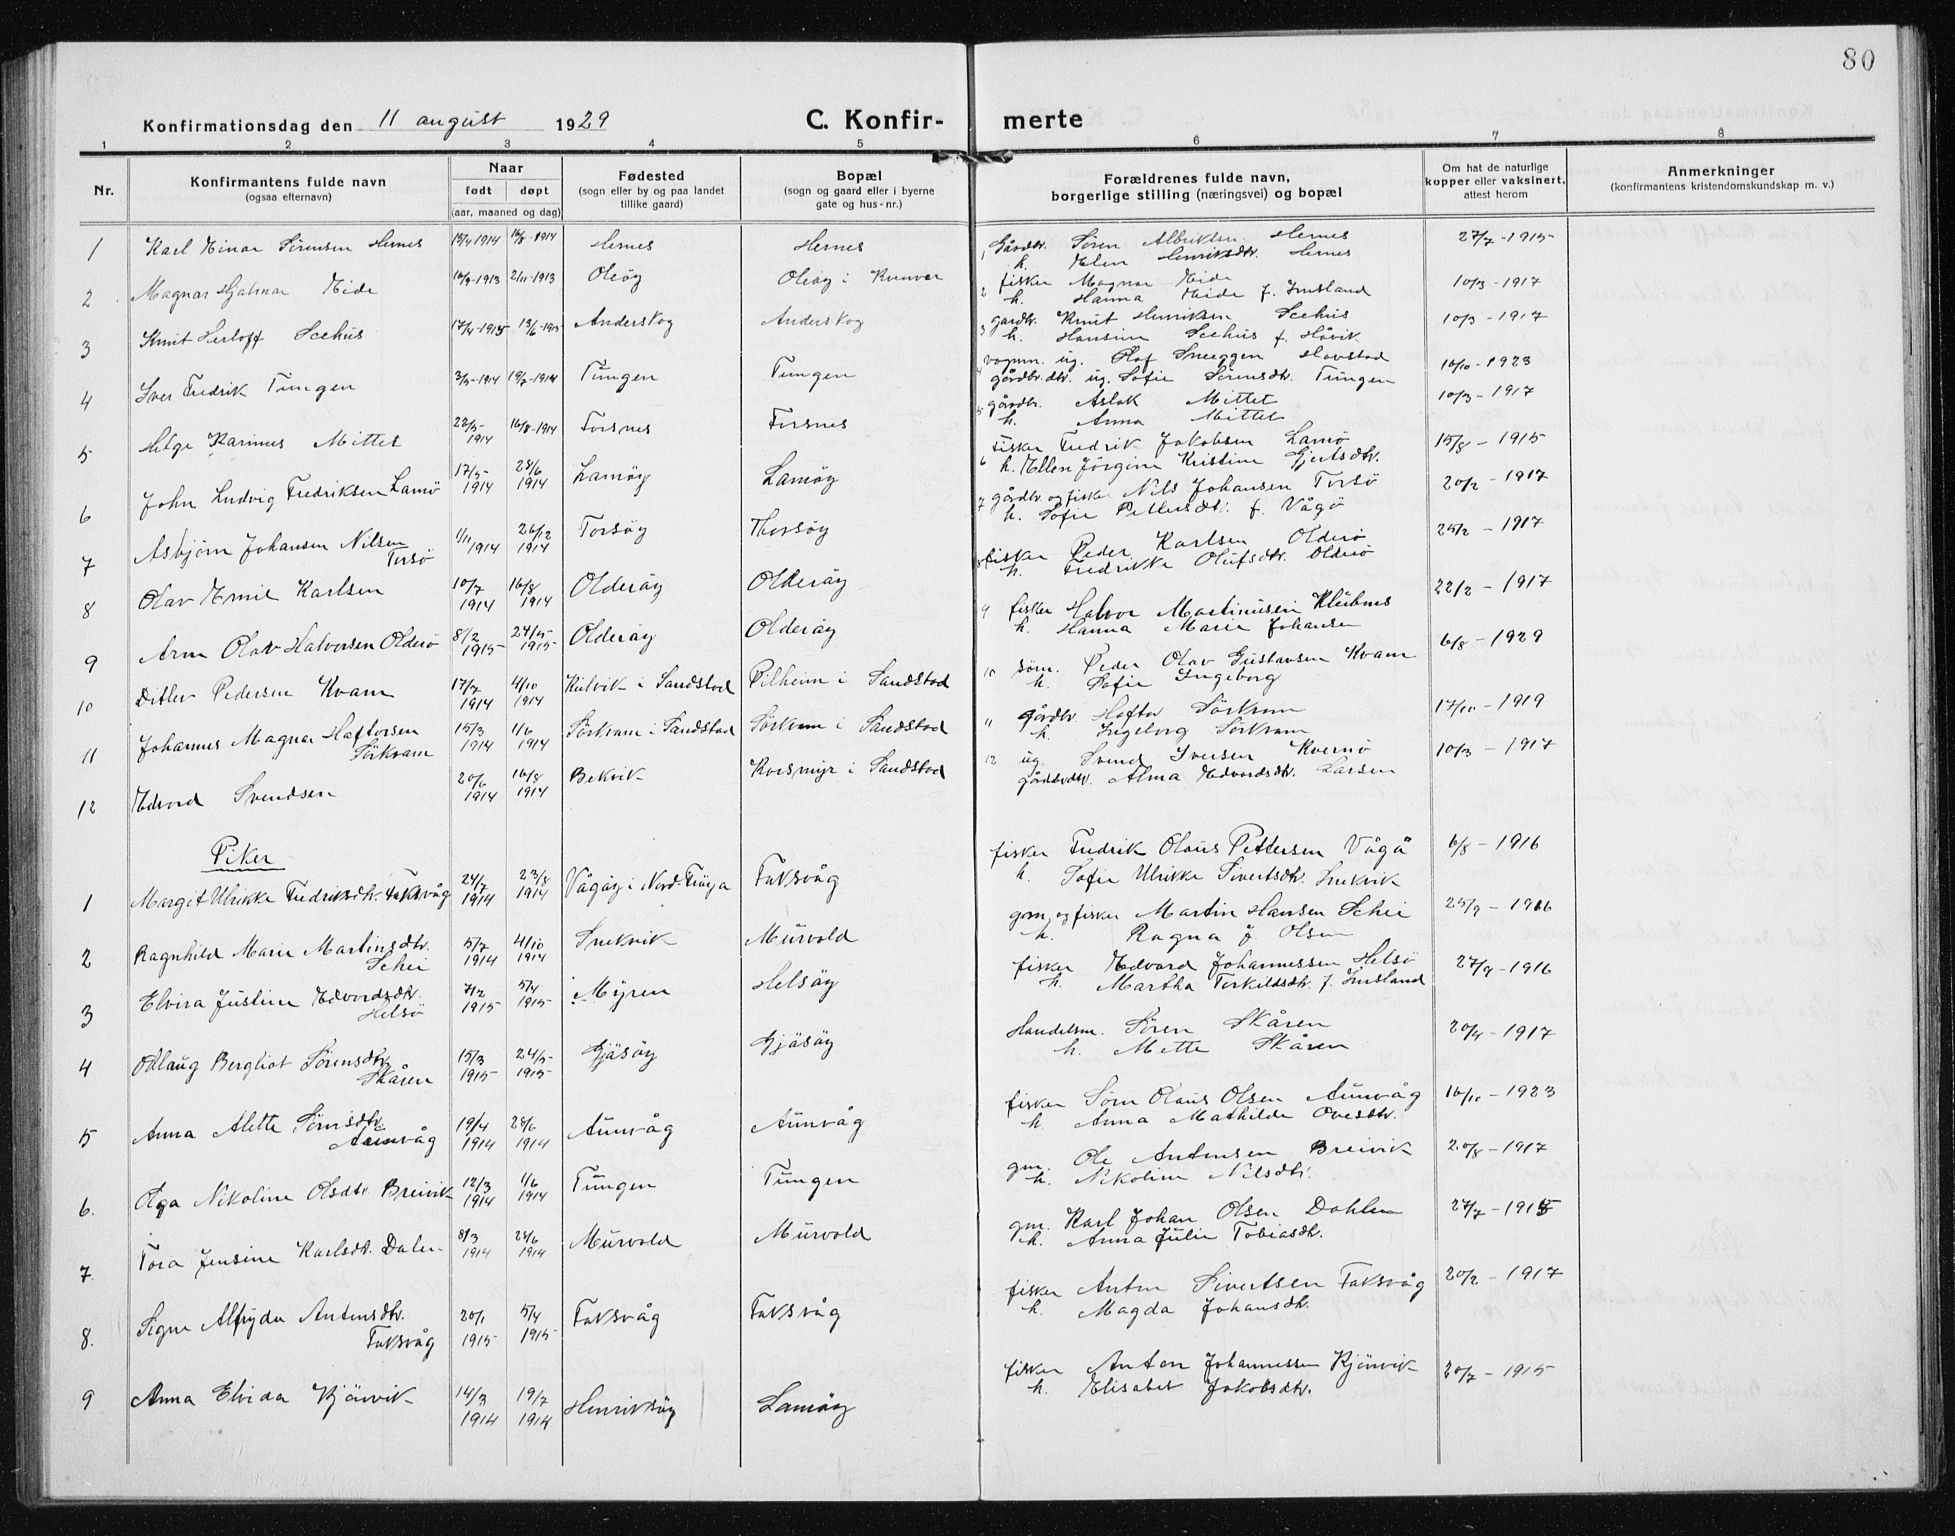 80
Konfirmationsdag den 11 august 1929
C. Konfir- merte
1 2 3 4 5 6 7 8
Nr.
Konfirmantens fulde navn
(ogsaa efternavn)
Naar
født døpt
(aar, maaned og dag)
Fødested
(sogn eller by og paa landet
tillike gaard)
Bopæl
(sogn og gaard eller i byerne
gate og hus-nr.)
Forældrenes fulde navn,
borgerlige stilling (næringsvei) og bopæl
Om hat de naturlige
kopper eller vaksinert,
attest herom
Anmerkninger
(konfirmantens kristendomskundskap m. v.)
1 Karl Einar Sörensen Hernes 1914 16/8-1914 Hernes Hernes
1 Gårdbr. Sören Albriktsen Hernes 27/7-1915
h. Elen Henriksdtr. Hernes
2 Magnar Hjalmar Eide 1913 2/11-1913 Oleöy Oleöy i
2 fisker Magnar Eide 10/3-1917
h. Hanna Eide f. Jusland
3 Knut Herloff Seehus 17/4-1915 13/6-1915 Anderskog Anderskog
3 gårdbr. Knut Henriksen Seehus 10/3-1917
h. Hansine Seehus f. Håvik
4 Iver Fredrik Tungen 3/5-1914 19/7-1914 Tungen Tungen
4 ug. Olaf Sneeggen Hovstad 10/10-1923
gårdbr.dtr. ug. Sofie Sörensdtr. Tungen
5 Helge Karinus Mittet 22/5-1914 16/8-1914 Forsnes Forsnes
5 gårdbr. Aslak Mittet 10/3-1917
h. Anna Mittet
6 John Ludvig Fredriksen Lamö 17/5-1914 28/6 1914 Lamöy Lamöy
6 fisker Fredrik Jakobsen Lamö 15/8-1915
h. Ellen Jörgine Kristine Gjertsdtr.
7 Asbjörn Johansen Nilsen Torsö 1/11 1914 26/12 1914 Torsöy Thorsöy
7 gårdbr og fisker Nils Johansen Torsö 20/2-1917
h. Sofie Pettersdtr. f. Vågö
8 Olav Emil Karlsen 10/7 1914 16/8 1914 Olderöy Olderöy
8 fisker Peder Karlsen Olderö 25/2-1917
h. Fredrikke Olufsdtr. Olderö
9 Arne Olav Halvorsen Olderö 8/2 1915 24/5 1915 Olderöy Olderöy
9 fisker Halvor Martinusen Klubnes 22/2-1917
h. Hanna Marie Johansen
10 Ditlev Pedersen Kvam 17/7 1914 4/10 1914 Kulvik i Sandstad Pilheim i Sandstad
10 söm. Peder Olav Gustavsen Kvam 6/8-1929
h. Sofie Ingeborg
11 Johannes Magnar Haftorsen Sörkvam 15/3 1914 1/6 1914 Sörkvam i Sandstad Sörkvam i Sandstad
11 gårdbr. Haftor Sörkvam 17/10-1919
h. Ingeborg Sörkvam
12 Edvard Svendsen 20/6 1914 16/8 1914 Bekvik Korsmyr i Sandstad
12 ug. Svend Iversen Kvernö 10/3-1917
gårdbr.dtr. Alma Edvardsdtr. Larsen
Piker
1 Margit Ulrikke Fredriksdtr. Faksvåg 24/7 1914 23/8 1914 Vågöy i Nord-Fröya Faksvåg
fisker Fredrik Olaus Pettersen Vågö 6/8-1916
h. Sofie Ulrikke Sivertsdtr. Snekvik
2 Ragnhild Marie Martinsdtr. Schei 5/7 1914 4/10 1914 Snekvik Murvold
gm. og fisker Martin Hansen Schei 25/9-1916
h. Ragna f. Olsen
3 Elvira Justine Edvardsdtr. Helsö 7/2 1915 5/4 1915 Myren Helsöy
fisker Edvard Johannessen Helsö 27/9-1916
h. Martha Torkildsdtr. f. Jusland
4 Odlaug Bergliot Sörensdtr Skåren 15/3 1915 24/5 1915 Gjäsöy Gjäsöy
Handelsm. Sören Skåren 20/4-1917
h. Mette Skåren
5 Anna Alette Sörensdtr. Aunvåg 19/4 1914 28/6 1914 Aunvåg Aunvåg
fisker Sören Olaus Olsen Aunvåg 16/10-1923
h. Anna Mathilde Ovesdtr.
6. Olga Nikoline Olsdtr Breivik 12/3 1914 1/6 1914 Tungen Tungen
gm. Ole Antonsen Breivik 20/8-1917
h. Nikoline Nilsdtr.
7. Tora Jensine Karlsdtr. Dalen 8/3 1914 28/6 1914 Murvold Murvold
gm. Karl Johan Olsen Dahlen 27/7-1915
h. Anna Julie Tobiasdtr.
8. Signe Alfryda Antonsdtr. Faksvåg 20/1 1915 5/4 1915 Faksvåg Faksvåg
fisker Anton Sivertsen Faksvåg 20/2-1917
h. Magda Johansdtr.
9 Anna Elvida Kjönvik 14/3 1914 19/7 1914 Henriksöy Lamöy
fisker Anton Johannessen Kjönvik 20/7-1915
h. Elisabet Jakobsdtr.